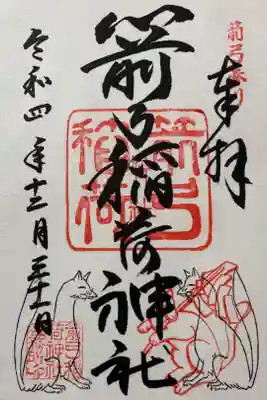 奉拝
箭弓稲荷神社
箭弓
稲荷
令和四年十二月三十一日